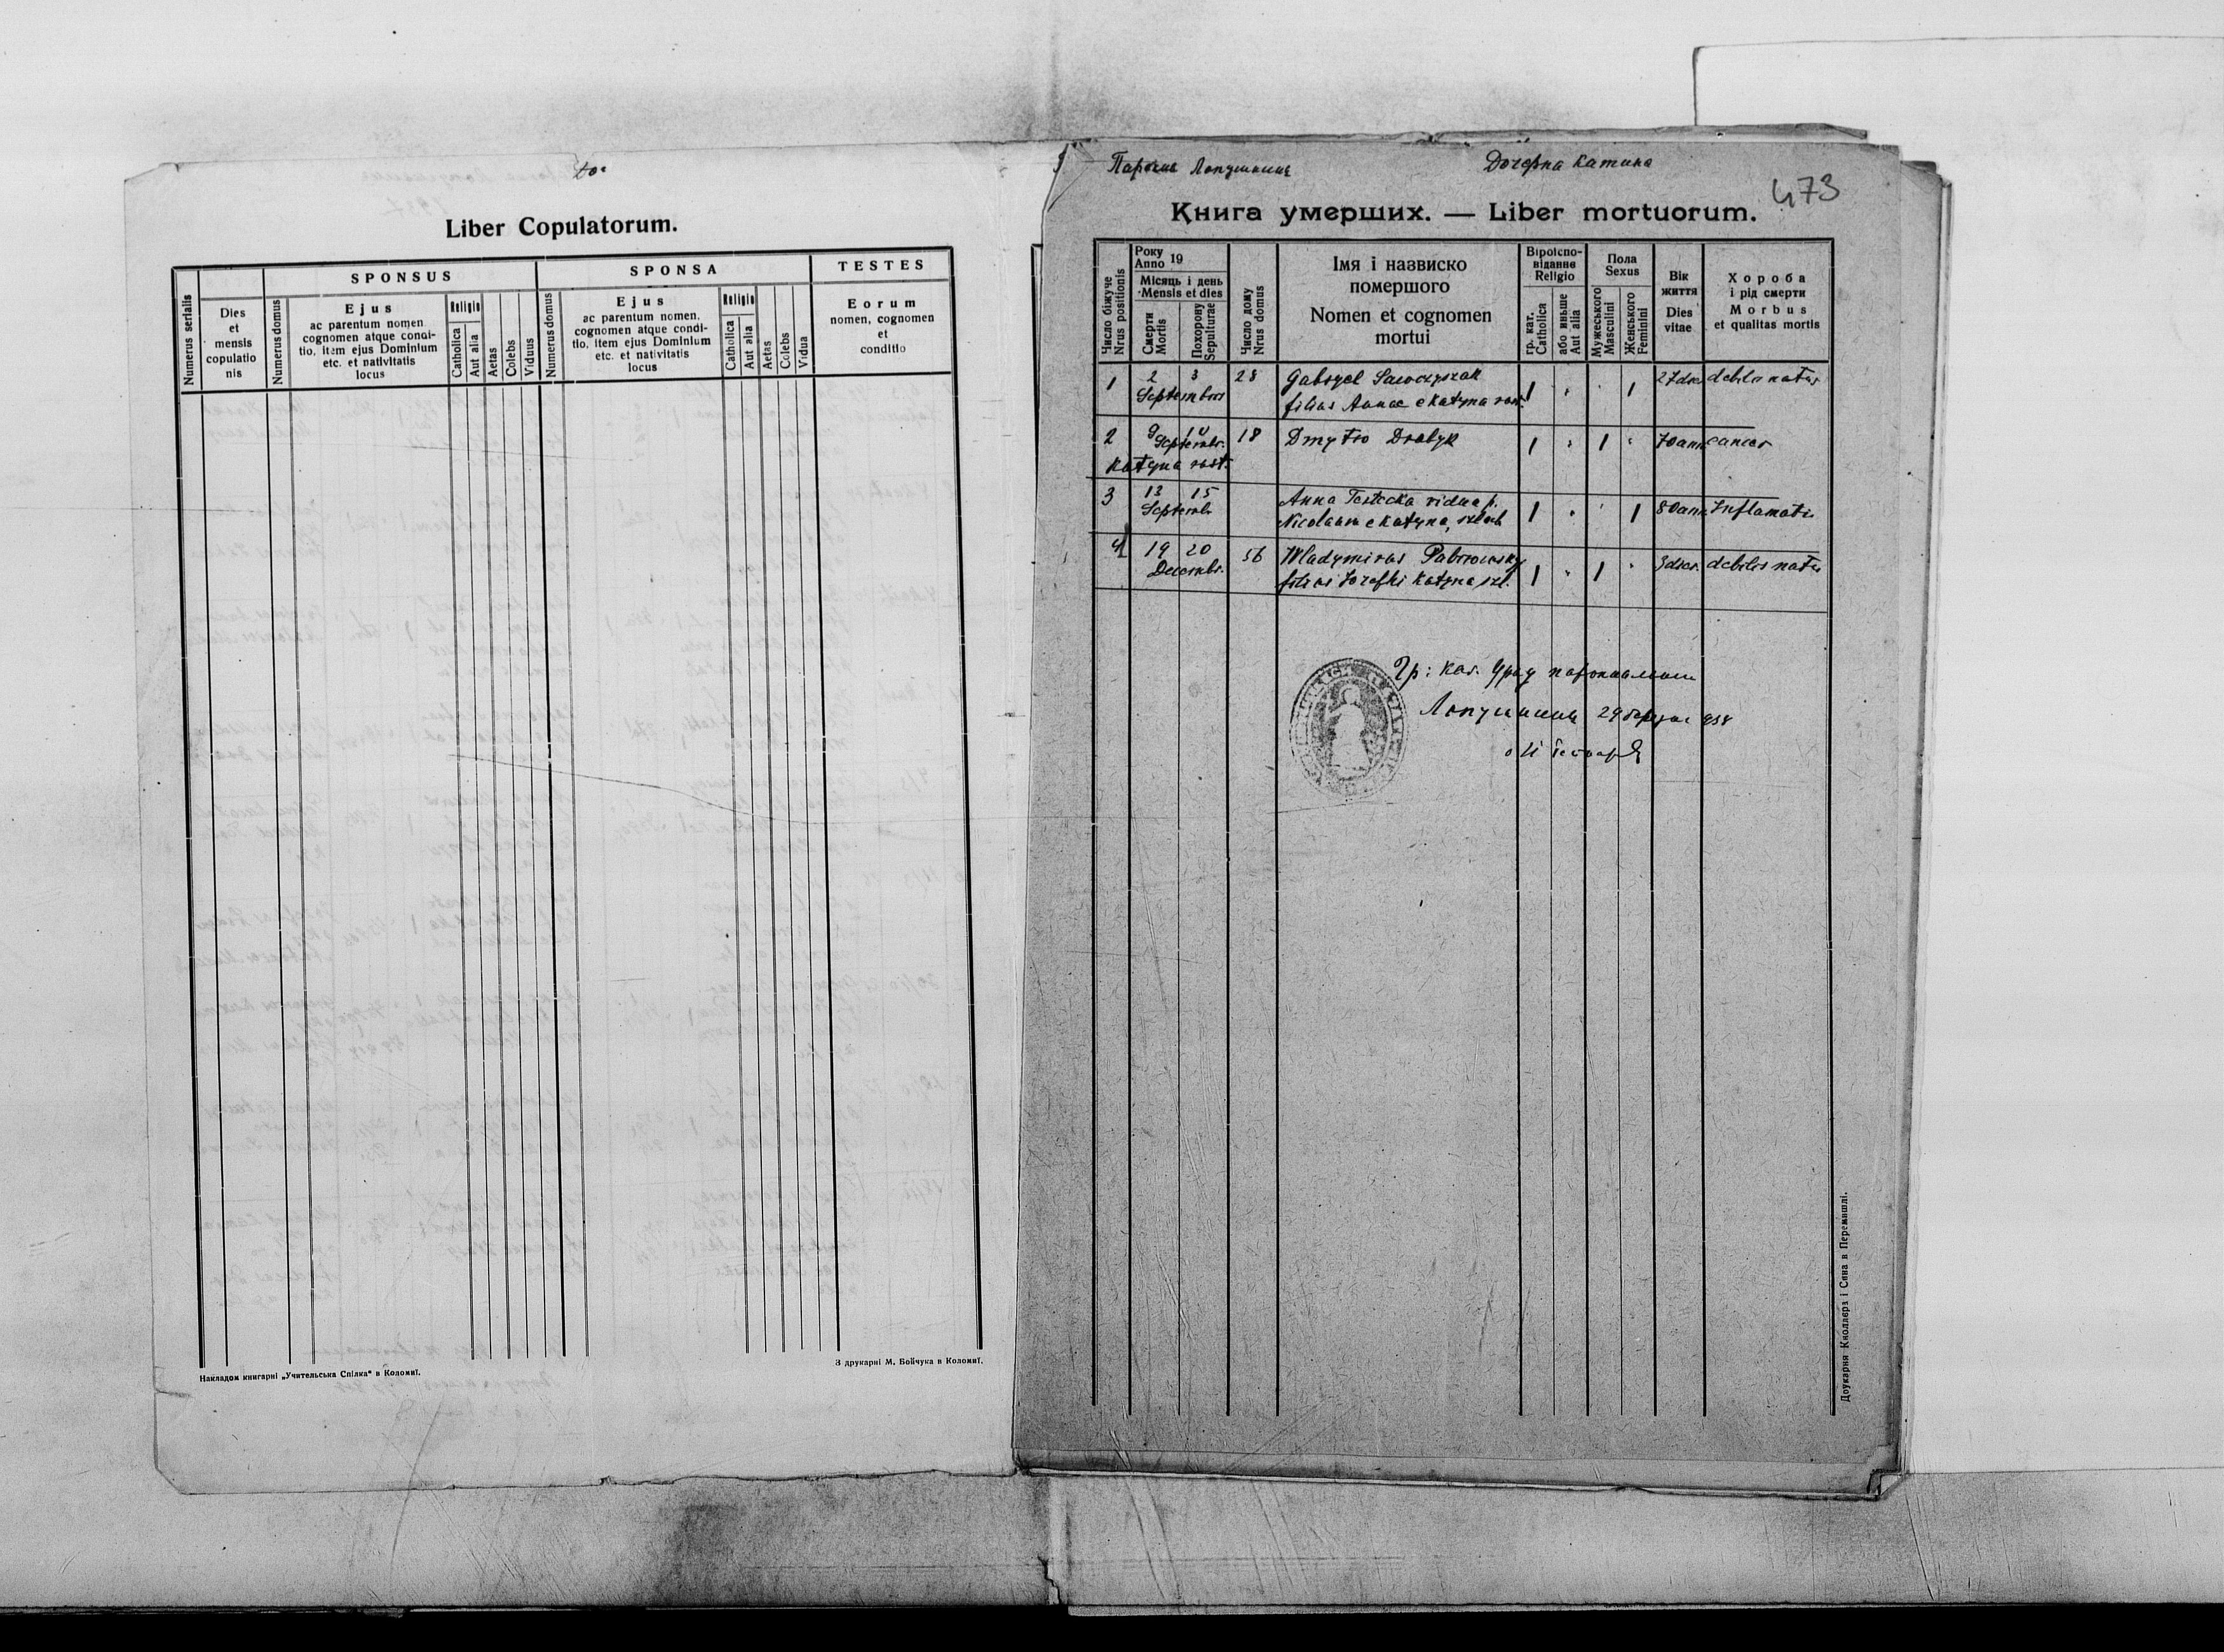 до
Liber Copulatorum.
SPONSUS
SPONSA
TESTES
Numerus serialis
Dies
et
mensis
copulatio
nis
Numerus domus
Ejus
ac parentum nomen
cognomen atque condi-
tio, item ejus Dominium
etc. et nativitatis
locus
Religio
Catholica
Aut alia
Aetas
Colebs
Viduus
Numerus domus
Ejus
ac parentum nomen,
cognomen atque condi-
tio, item ejus Dominium
etc. et nativitatis
locus
Religio
Catholica
Aut alia
Aetas
Colebs
Vidua
Eorum
nomen, cognomen
et
conditio
Накладом книгарні „Учительська Спілка" в Коломиї.
З друкарні М. Бойчука в Коломиї.
Парохия Лопушниця
Дочерна Катина
473
Книга умерших. — Liber mortuorum.
Число біжуче
Nrus positionis
Року
Anno 19
Місяць і день
Mensis et dies
Смерти
Mortis
Похорону
Sepulturae
Число дому
Nrus domus
Імя і назвиско
помершого
Nomen et cognomen
mortui
Віроіспо-
віданнє
Religio
гр. кат.
Catholica
або иньше
Aut alia
Пола
Sexus
Мужеського
Masculini
Женського
Feminini
Вік
життя
Dies
vitae
Хороба
і рід смерти
Morbus
et qualitas mortis
1 2 3 28 Gabryel 1 1 27 dies debilis natus
Septembris filius Annae e Katyna rust.
2 9 10 18 Dmytro Drabyk 1 1 70 ann cancer
Septembr.
Katyna rust.
3 13 15 Anna vidua p. 1 1 80 ann Inflamatio
Septembr. Nicolaum e Katyna,
4 19 20 56 Wladymirus 1 1 3 dies. debilis natus
Decembr. filius Katyna szl.
Гр: кат. Уряд парохиальний
Лопушниця 29 березня 938
Друкарня Кноллєра і Сина в Перемишлі.